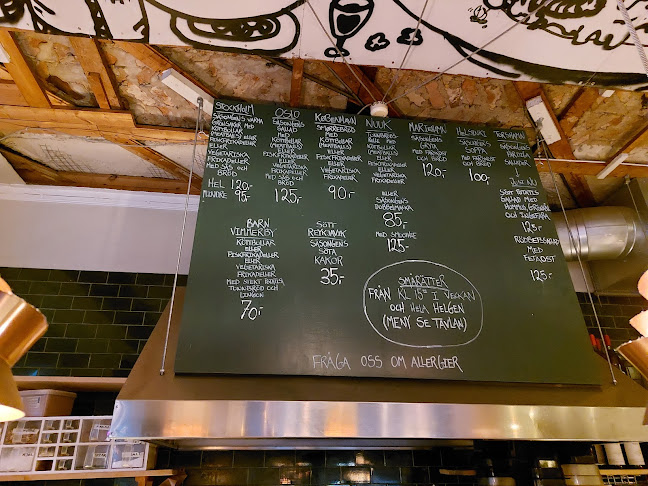 STOCKHOLM
SÄSONGENS VARMA
GRÖNSAKER MED
KÖTTBULLAR
(MEATBALLS)
ELLER
FISKFRIKADELLER
ELLER
VEGETARISKA
FRIKADELLER
MED SÅS OCH
BRÖD
HEL 120,-
95,-
OSLO
SÄSONGENS
SALLAD
MED
KÖTTBULLAR
(MEATBALLS)
ELLER
FISKFRIKADELLER
ELLER
VEGETARISKA
FRIKADELLER
MED SÅS OCH
BRÖD
125,-
KØBENHAVN
SMØRREBRÖD
MED
KÖTTBULLAR
(MEATBALLS)
ELLER
FISKFRIKADELLER
ELLER
VEGETARISKA
FRIKADELLER
90,-
NUUK
TUNNBRÖDS
RULLE MED
KÖTTBULLAR
(MEATBALLS)
ELLER
FISKFRIKADELLER
ELLER
VEGETARISKA
FRIKADELLER
ELLER
SÄSONGENS
DUBBELMACKA
85,-
MED SMOOTHIE
125,-
MARIEHAMN
SÄSONGENS
GRYTA
MED
OCH BRÖD
120,-
HELSINKI
SÄSONGENS
SOPPA
OCH BRÖD
100,-
TORSHAMN
SÄSONGENS
SALLAD
JUST NU
SÖT POTATIS
SALLAD MED
HUMMUS,
OCH INGEFÄRA
125,-
RÖDBETSSALLAD
MED
FETAOST
125,-
BARN
VIMMERBY
KÖTTBULLAR
ELLER
FISKFRIKADELLER
ELLER
VEGETARISKA
FRIKADELLER
MED STEKT POTATIS,
TUNNBRÖD OCH
LINGON
70,-
SÖTT
REYKJAVIK
SÄSONGENS
SÖTA
KAKOR
35,-
SMÅRÄTTER
FRÅN KL 15 I VECKAN
OCH HELA HELGEN
(MENY SE TAVLAN)
FRÅGA OSS OM ALLERGIER